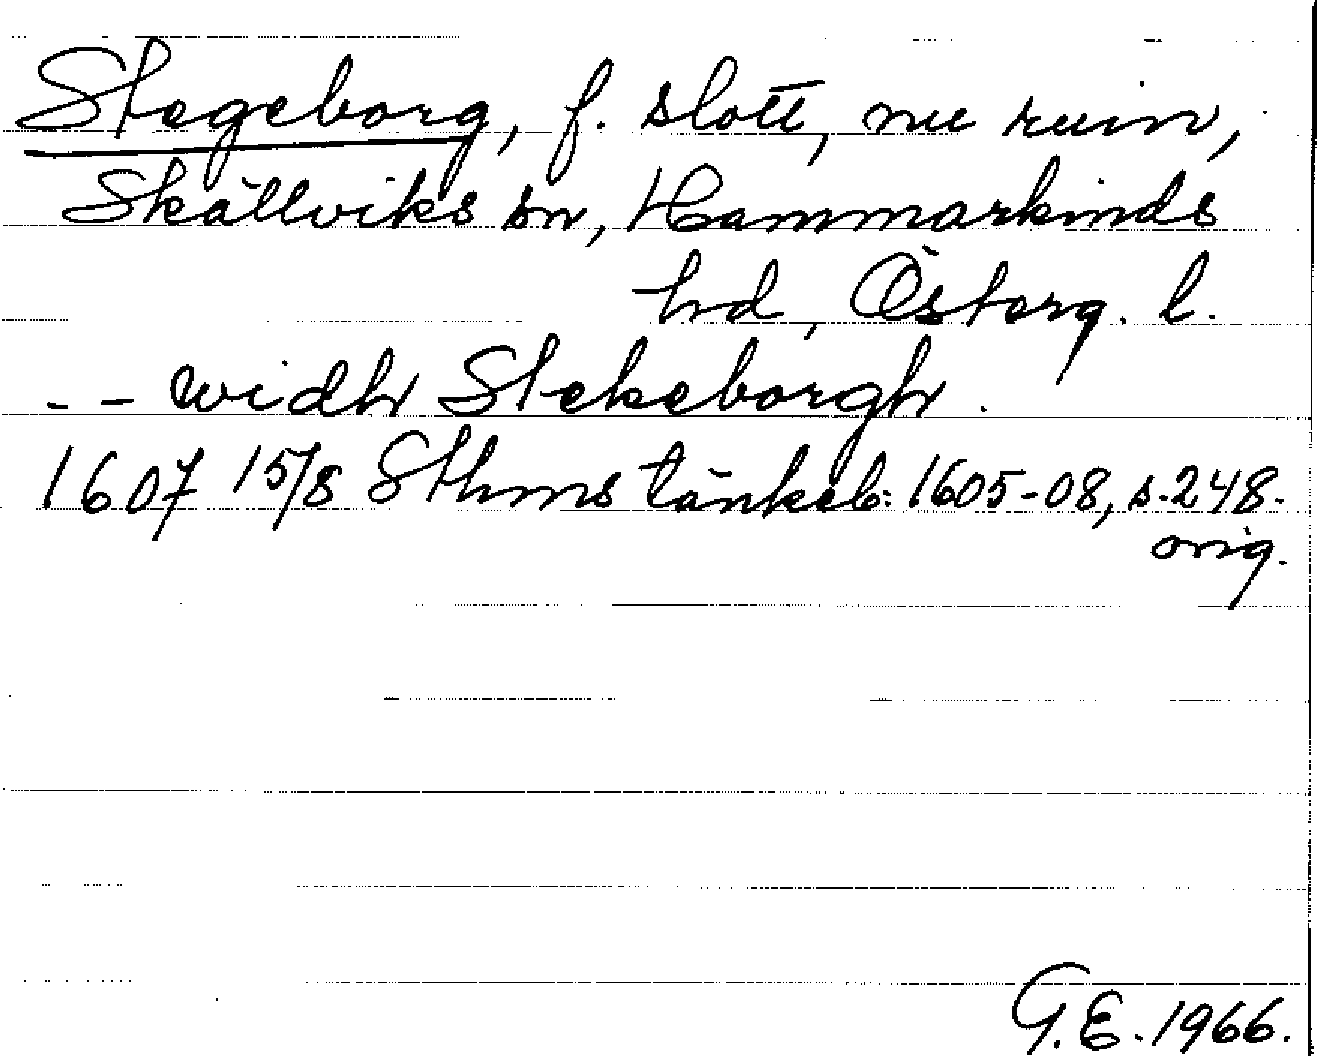 Stegeborg, f. slott, nu ruin,
Skällviks sn, Hammarkinds
hd, Österg. l.
-- widh Stekeborgh.
1607 15/8 Sthms tänkeb. 1605-08, s. 248.
orig.
G.E. 1966.